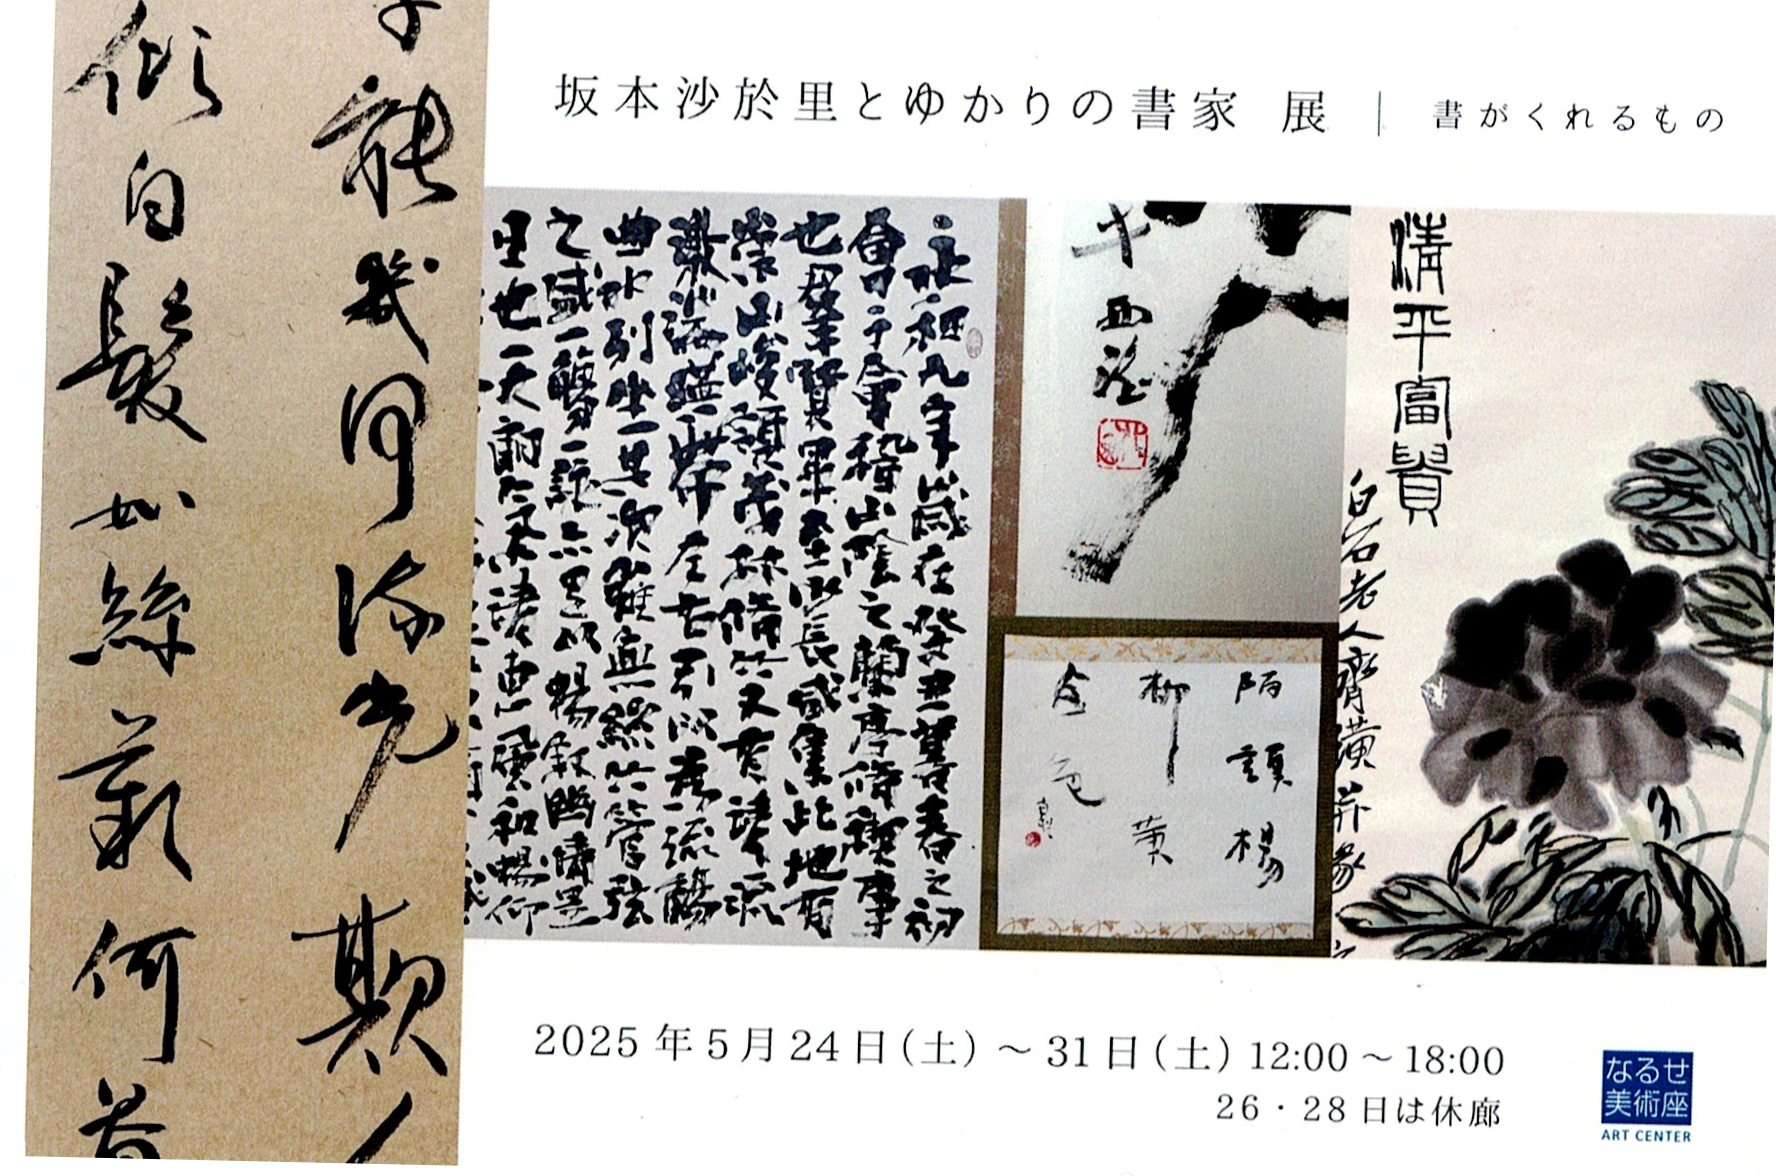 坂本沙於里とゆかりの書家 展｜書がくれるもの
能幾何流光欺人
傾白髮如絲歎何益
永和九年歲在癸丑暮春之初
會于會稽山陰之蘭亭脩禊事
也群賢畢至少長咸集此地有
崇山峻領茂林脩竹又有清流
激湍暎帶左右引以為流觴
曲水列坐其次雖無絲竹管弦
之盛一觴一詠亦足以暢敘幽情
是日也天朗氣清惠風和暢仰
陌頭楊
柳黄
金色
清平富貴
白石老人齊璜并篆
2025年5月24日（土）～31日（土）12:00～18:00
26・28日は休廊
なるせ
美術座
ART CENTER